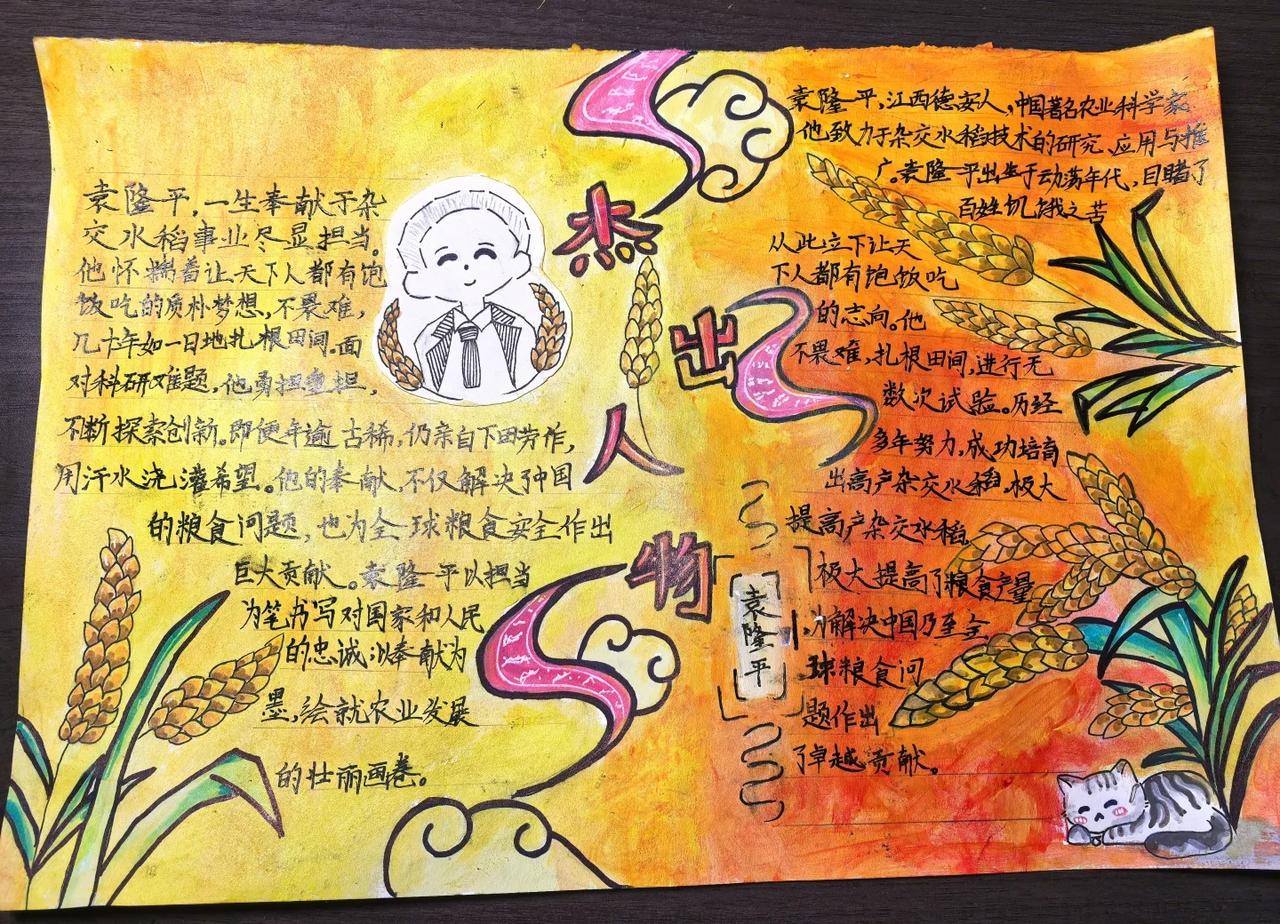 杰
出
人
物
袁隆平
袁隆平,一生奉献于杂
交水稻事业尽显担当。
他怀揣着让天下人都有饱
饭吃的质朴梦想,不畏难,
几十年如一日地扎根田间。面
对科研难题,他勇担重担,
不断探索创新。即便年逾古稀,仍亲自下田劳作,
用汗水浇灌希望。他的奉献,不仅解决了中国
的粮食问题,也为全球粮食安全作出
巨大贡献。袁隆平以担当
为笔书写对国家和人民
的忠诚;以奉献为
墨,绘就农业发展
的壮丽画卷。
袁隆平,江西德安人,中国著名农业科学家
他致力于杂交水稻技术的研究、应用与推
广。袁隆平出生于动荡年代,目睹了
百姓饥饿之苦
从此立下让天
下人都有饱饭吃
的志向。他
不畏难,扎根田间,进行无
数次试验。历经
多年努力,成功培育
出高产杂交水稻,极大
提高产杂交水稻
极大提高了粮食产量
,为解决中国乃至全
球粮食问
题作出
了卓越贡献。